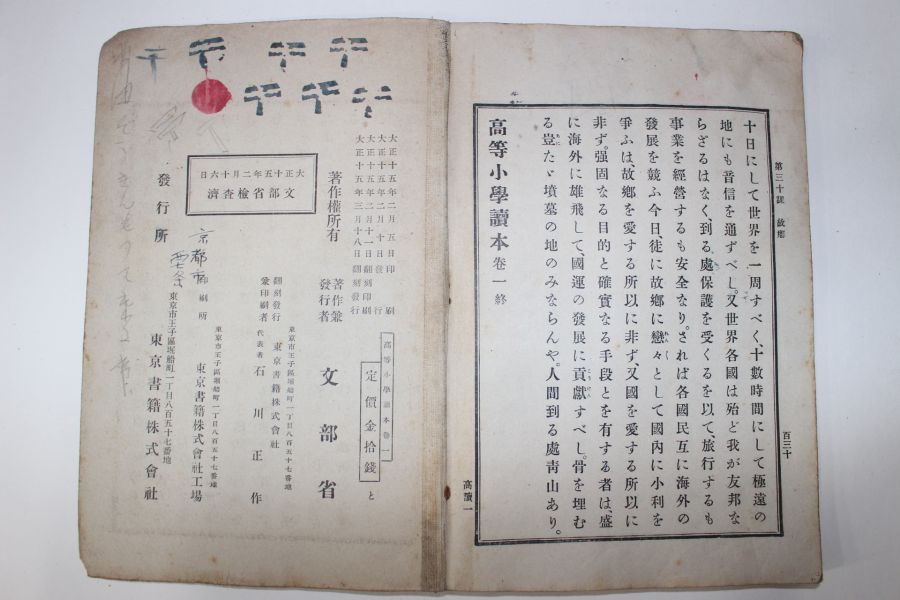 第三十課 故鄕
百三十
十日にして世界を一周すべく、十數時間にして極遠の
地にも音信を通ずべし。又世界各國は殆ど我が友邦な
らざるはなく、到る處保護を受くるを以て旅行するも
事業を經營するも安全なり。されば各國民互に海外の
發展を競ふ今日、徒に故鄕に戀々として國內に小利を
爭ふは、故鄕を愛する所以に非ず、又國を愛する所以に
非ず。强固なる目的と確實なる手段とを有する者は、盛
に海外に雄飛して、國運の發展に貢獻すべし。骨を埋む
る豈たゞ墳墓の地のみならんや。人間到る處靑山あり。
高等小學讀本 卷一終
高讀一
高等小學讀本卷一
定價金拾錢
と
大正十五年二月五日印刷
大正十五年二月十日發行
大正十五年二月十一日翻刻印刷
大正十五年三月十八日翻刻發行
著作權所有
著作兼
發行者
文部省
大正十五年二月十六日
文部省檢查濟
翻刻發行
兼印刷者
東京市王子區堀船町一丁目八百五十七番地
東京書籍株式會社
代表者 石川正作
印刷所
東京市王子區堀船町一丁目八百五十七番地
東京書籍株式會社工場
京都市
發行所
東京市王子區堀船町一丁目八百五十七番地
東京書籍株式會社